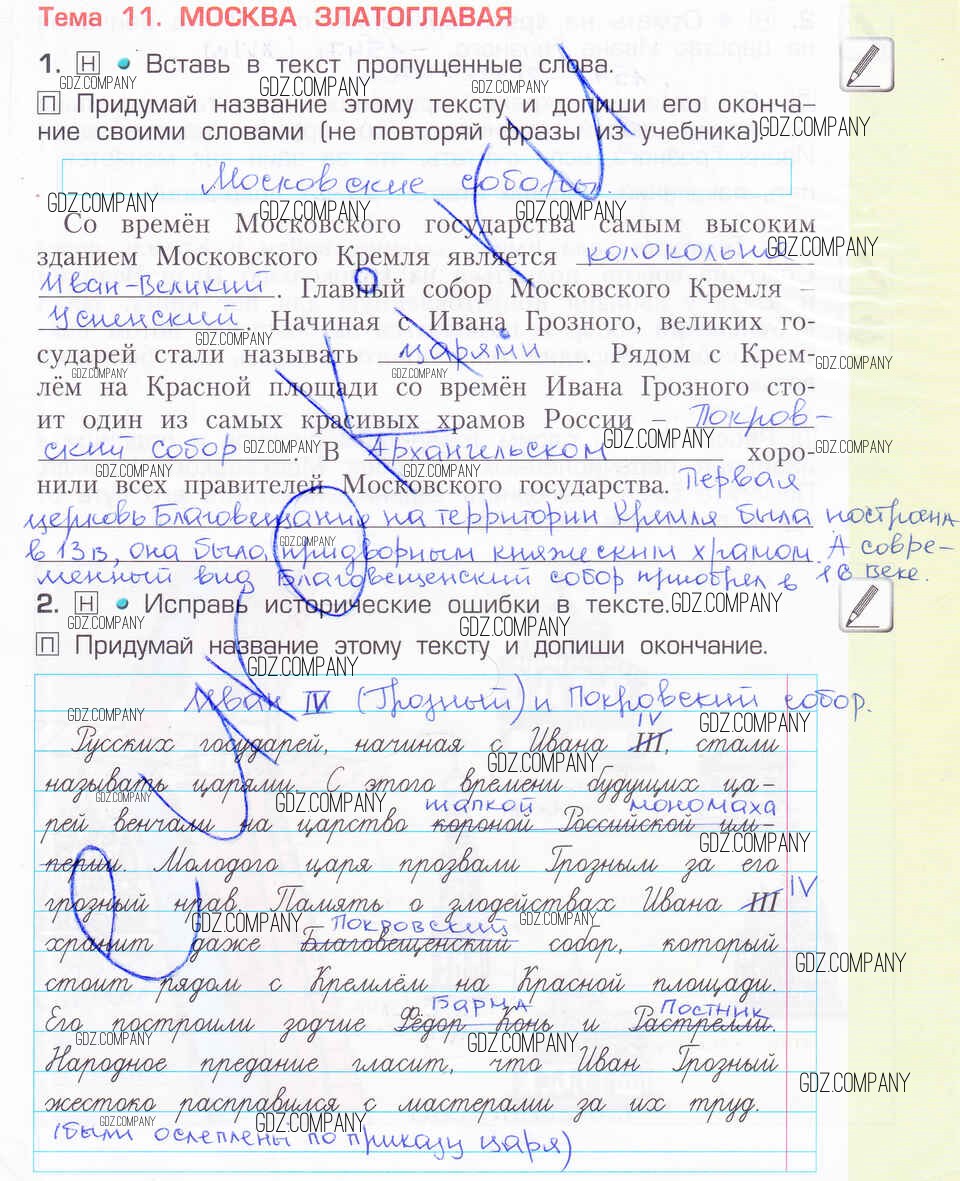 Тема 11. МОСКВА ЗЛАТОГЛАВАЯ
1. Н • Вставь в текст пропущенные слова.
П Придумай название этому тексту и допиши его оконча-
ние своими словами (не повторяй фразы из учебника).
Московские соборы.
Со времён Московского государства самым высоким
зданием Московского Кремля является колокольна
Иван-Великий. Главный собор Московского Кремля –
Успенский. Начиная с Ивана Грозного, великих го-
сударей стали называть царями. Рядом с Крем-
лём на Красной площади со времён Ивана Грозного сто-
ит один из самых красивых храмов России – Покров-
ский собор. В Архангельском хоро-
нили всех правителей Московского государства. Первая
церковь Благовещание на территории Кремля была построена
в 13в, она была придворным княжеским храмом. А совре-
менный вид Благовещенский собор приобрел в 16 веке.
2. Н • Исправь исторические ошибки в тексте.
П Придумай название этому тексту и допиши окончание.
Иван IV (Грозный) и Покровский собор.
IV
Русских государей, начиная с Ивана III, стали
называть царями. С этого времени будущих ца-
шапкой мономаха
рей венчали на царство короной Российской им-
перии. Молодого царя прозвали Грозным за его
IV
грозный нрав. Память о злодействах Ивана III
Покровский
хранит даже Благовещенский собор, который
стоит рядом с Кремлём на Красной площади.
Барма Постник
Его построили зодчие Фёдор Конь и Растрелли.
Народное предание гласит, что Иван Грозный
жестоко расправился с мастерами за их труд.
(были ослеплены по приказу царя)
GDZ.COMPANY